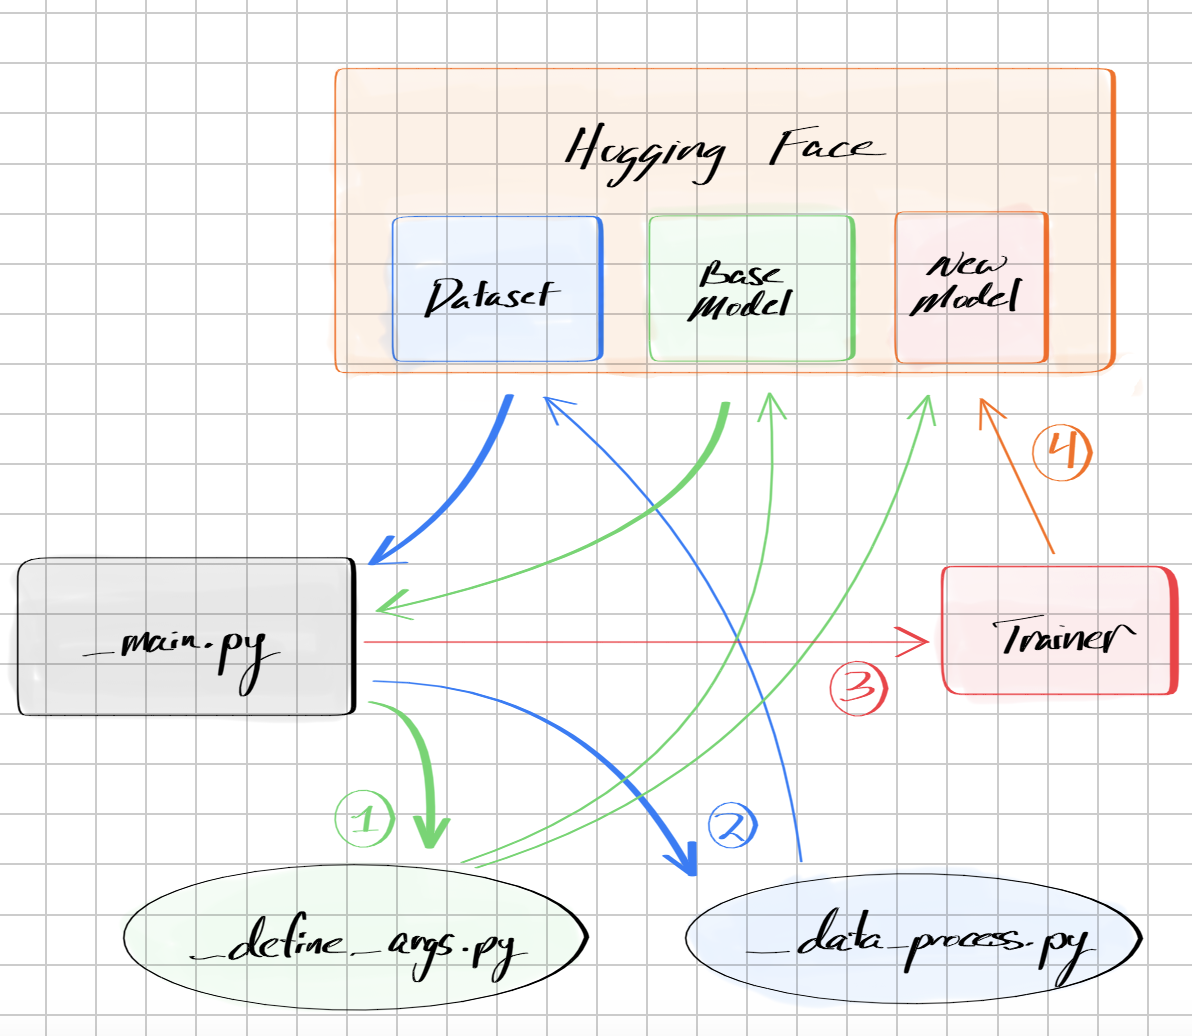 Hogging Face
Dataset
Base
Model
New
Model
4
_main.py
Trainer
3
1
2
_define_args.py
_data_process.py